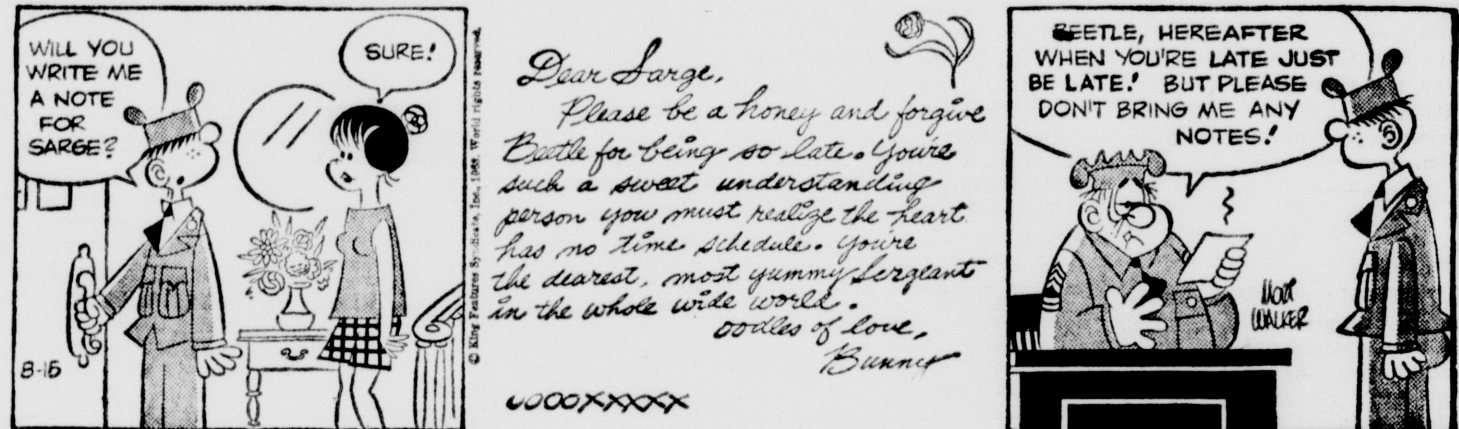 WILL YOU
WRITE ME
A NOTE
FOR
SARGE?
SURE!
8-15
© King Features Syndicate, Inc., 1968. World rights reserved.
Dear Sarge,
Please be a honey and forgive
Beetle for being so late. You're
such a sweet understanding
person you must realize the heart
has no time schedule. You're
the dearest, most yummy Sergeant
in the whole wide world.
oodles of love,
Bunny
OOOOXXXXX
BEETLE, HEREAFTER
WHEN YOU'RE LATE JUST
BE LATE! BUT PLEASE
DON'T BRING ME ANY
NOTES!
MORT
WALKER